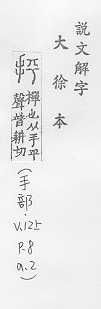 說文解字
大徐本
抨 撣也从手平
聲普耕切
(手部·V.12上
P.8
a.2)